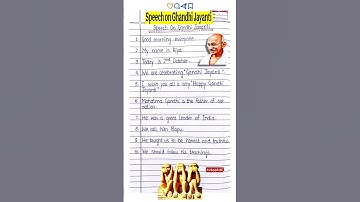 Speech on Ghandhi Jayanti
Speech On Gandhi Jayanti
1. Good morning everyone.
2. My name is Riya.
3. Today is 2nd October.
4. We are celebrating "Gandhi Jayanti".
5. I wish you all a very "Happy Gandhi
Jayanti"
6. Mahatma Gandhi is the father of our
nation.
7. He was a great leader of India.
8. We call him Bapu.
9. He taught us to be honest and truthful.
10. We should follow his teachings.